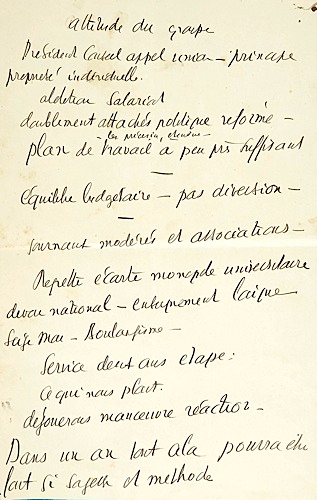 attitude du groupe
President Conseil appel union – principe
propriété individuelle.
abolition salariat
doublement attachés politique réforme –
les préciser, étendre –
plan de travail à peu près suffisant
—
équilibre budgétaire – pas diversion –
—
journaux modérés et associations –
Regrette écarte monopole universitaire
devoir national – enseignement laïque
Seize Mai – Boulangisme –
Service deux ans étape :
ce qui nous plait.
déjouerons manœuvre réaction –
Dans un an tout cela pourra être
fait si sagesse et méthode